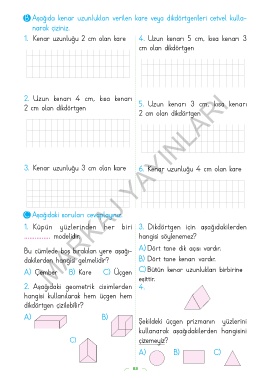 B Aşağıda kenar uzunlukları verilen kare veya dikdörtgenleri cetvel kulla-
narak çiziniz.
1. Kenar uzunluğu 2 cm olan kare
4. Uzun kenarı 5 cm, kısa kenarı 3
cm olan dikdörtgen
2. Uzun kenarı 4 cm, kısa kenarı
2 cm olan dikdörtgen
5. Uzun kenarı 3 cm, kısa kenarı
2 cm olan dikdörtgen
3. Kenar uzunluğu 3 cm olan kare
6. Kenar uzunluğu 4 cm olan kare
C Aşağıdaki soruları cevaplayınız.
1. Küpün yüzlerinden her biri
................ modelidir.
Bu cümlede boş bırakılan yere aşağı-
dakilerden hangisi gelmelidir?
A) Çember B) Kare C) Üçgen
2. Aşağıdaki geometrik cisimlerden
hangisi kullanılarak hem üçgen hem
dikdörtgen çizilebilir?
A) B)
C)
3. Dikdörtgen için aşağıdakilerden
hangisi söylenemez?
A) Dört tane dik açısı vardır.
B) Dört tane kenarı vardır.
C) Bütün kenar uzunlukları birbirine
eşittir.
4.
Şekildeki üçgen prizmanın yüzlerini
kullanarak aşağıdakilerden hangisini
çizemeyiz?
A) B) C)
MARKAJ YAYINLARI